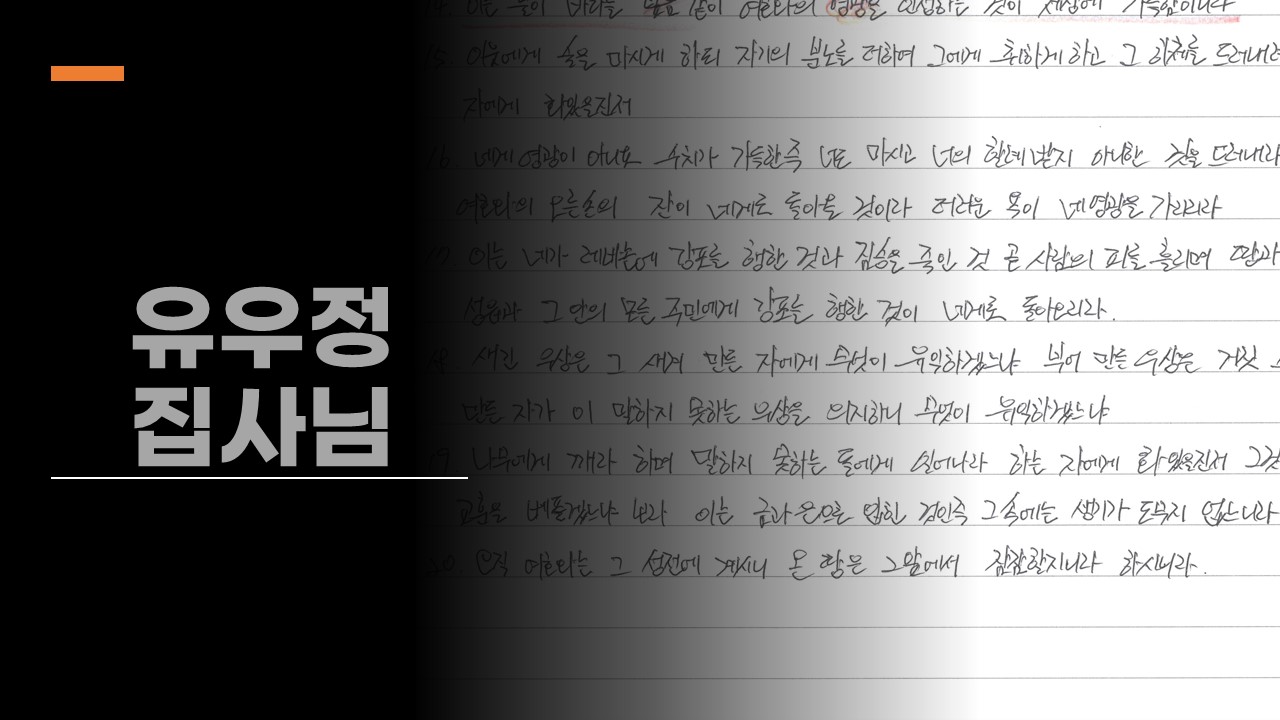 유우정
집사님
14. 이는 물이 바다를 덮음 같이 여호와의 영광을 인정하는 것이 세상에 가득함이니라
15. 이웃에게 술을 마시게 하되 자기의 분노를 더하여 그에게 취하게 하고 그 하체를 드러내려
자에게 화있을진저
16. 네게 영광이 아니요 수치가 가득한즉 너도 마시고 너의 할례 받지 아니한 것을 드러내라
여호와의 오른손의 잔이 네게로 돌아올 것이라 더러운 욕이 네 영광을 가리리라
17. 이는 네가 레바논에 강포를 행한 것과 짐승을 죽인 것 곧 사람의 피를 흘리며 땅과
성읍과 그 안의 모든 주민에게 강포를 행한 것이 네게로 돌아오리라.
18. 새긴 우상은 그 새겨 만든 자에게 무엇이 유익하겠느냐 부어 만든 우상은 거짓
만든 자가 이 말하지 못하는 우상을 의지하니 무엇이 유익하겠느냐
19. 나무에게 깨라 하며 말하지 못하는 돌에게 일어나라 하는 자에게 화있을진저 그것
교훈을 베풀겠느냐 보라 이는 금과 은으로 입힌 것인즉 그 속에는 생기가 도무지 없느니라
20. 오직 여호와는 그 성전에 계시니 온 땅은 그 앞에서 잠잠할지니라 하시니라.